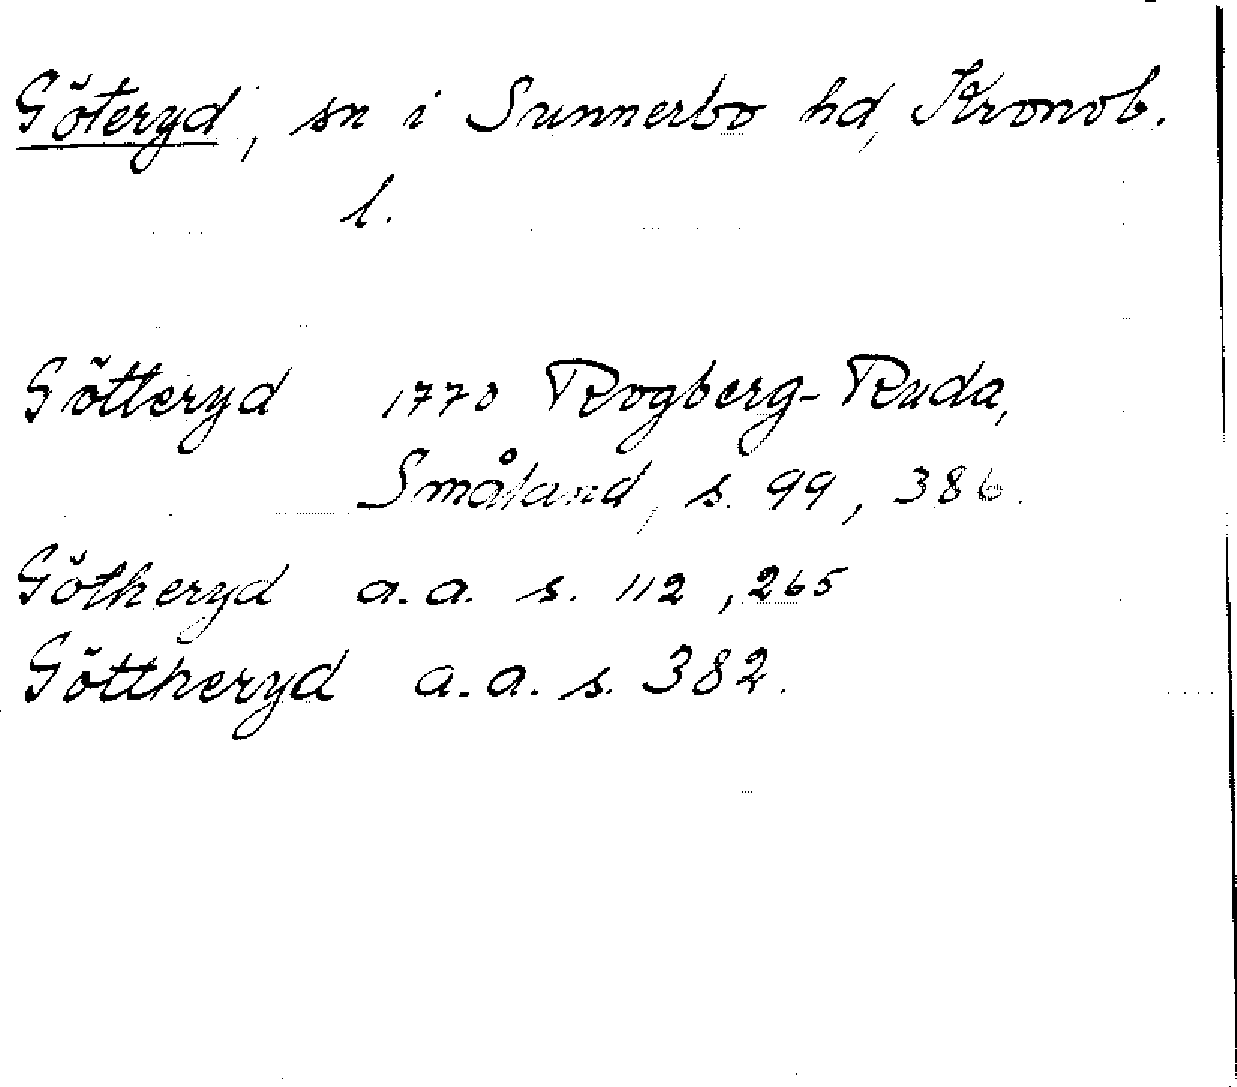 Göteryd, sn i Sunnerbo hd, Kronob.
l.
Götteryd 1770 Rogberg-Ruda,
Småland, s. 99, 386.
Götheryd a.a. s. 112, 265
Göttheryd a.a. s. 382.